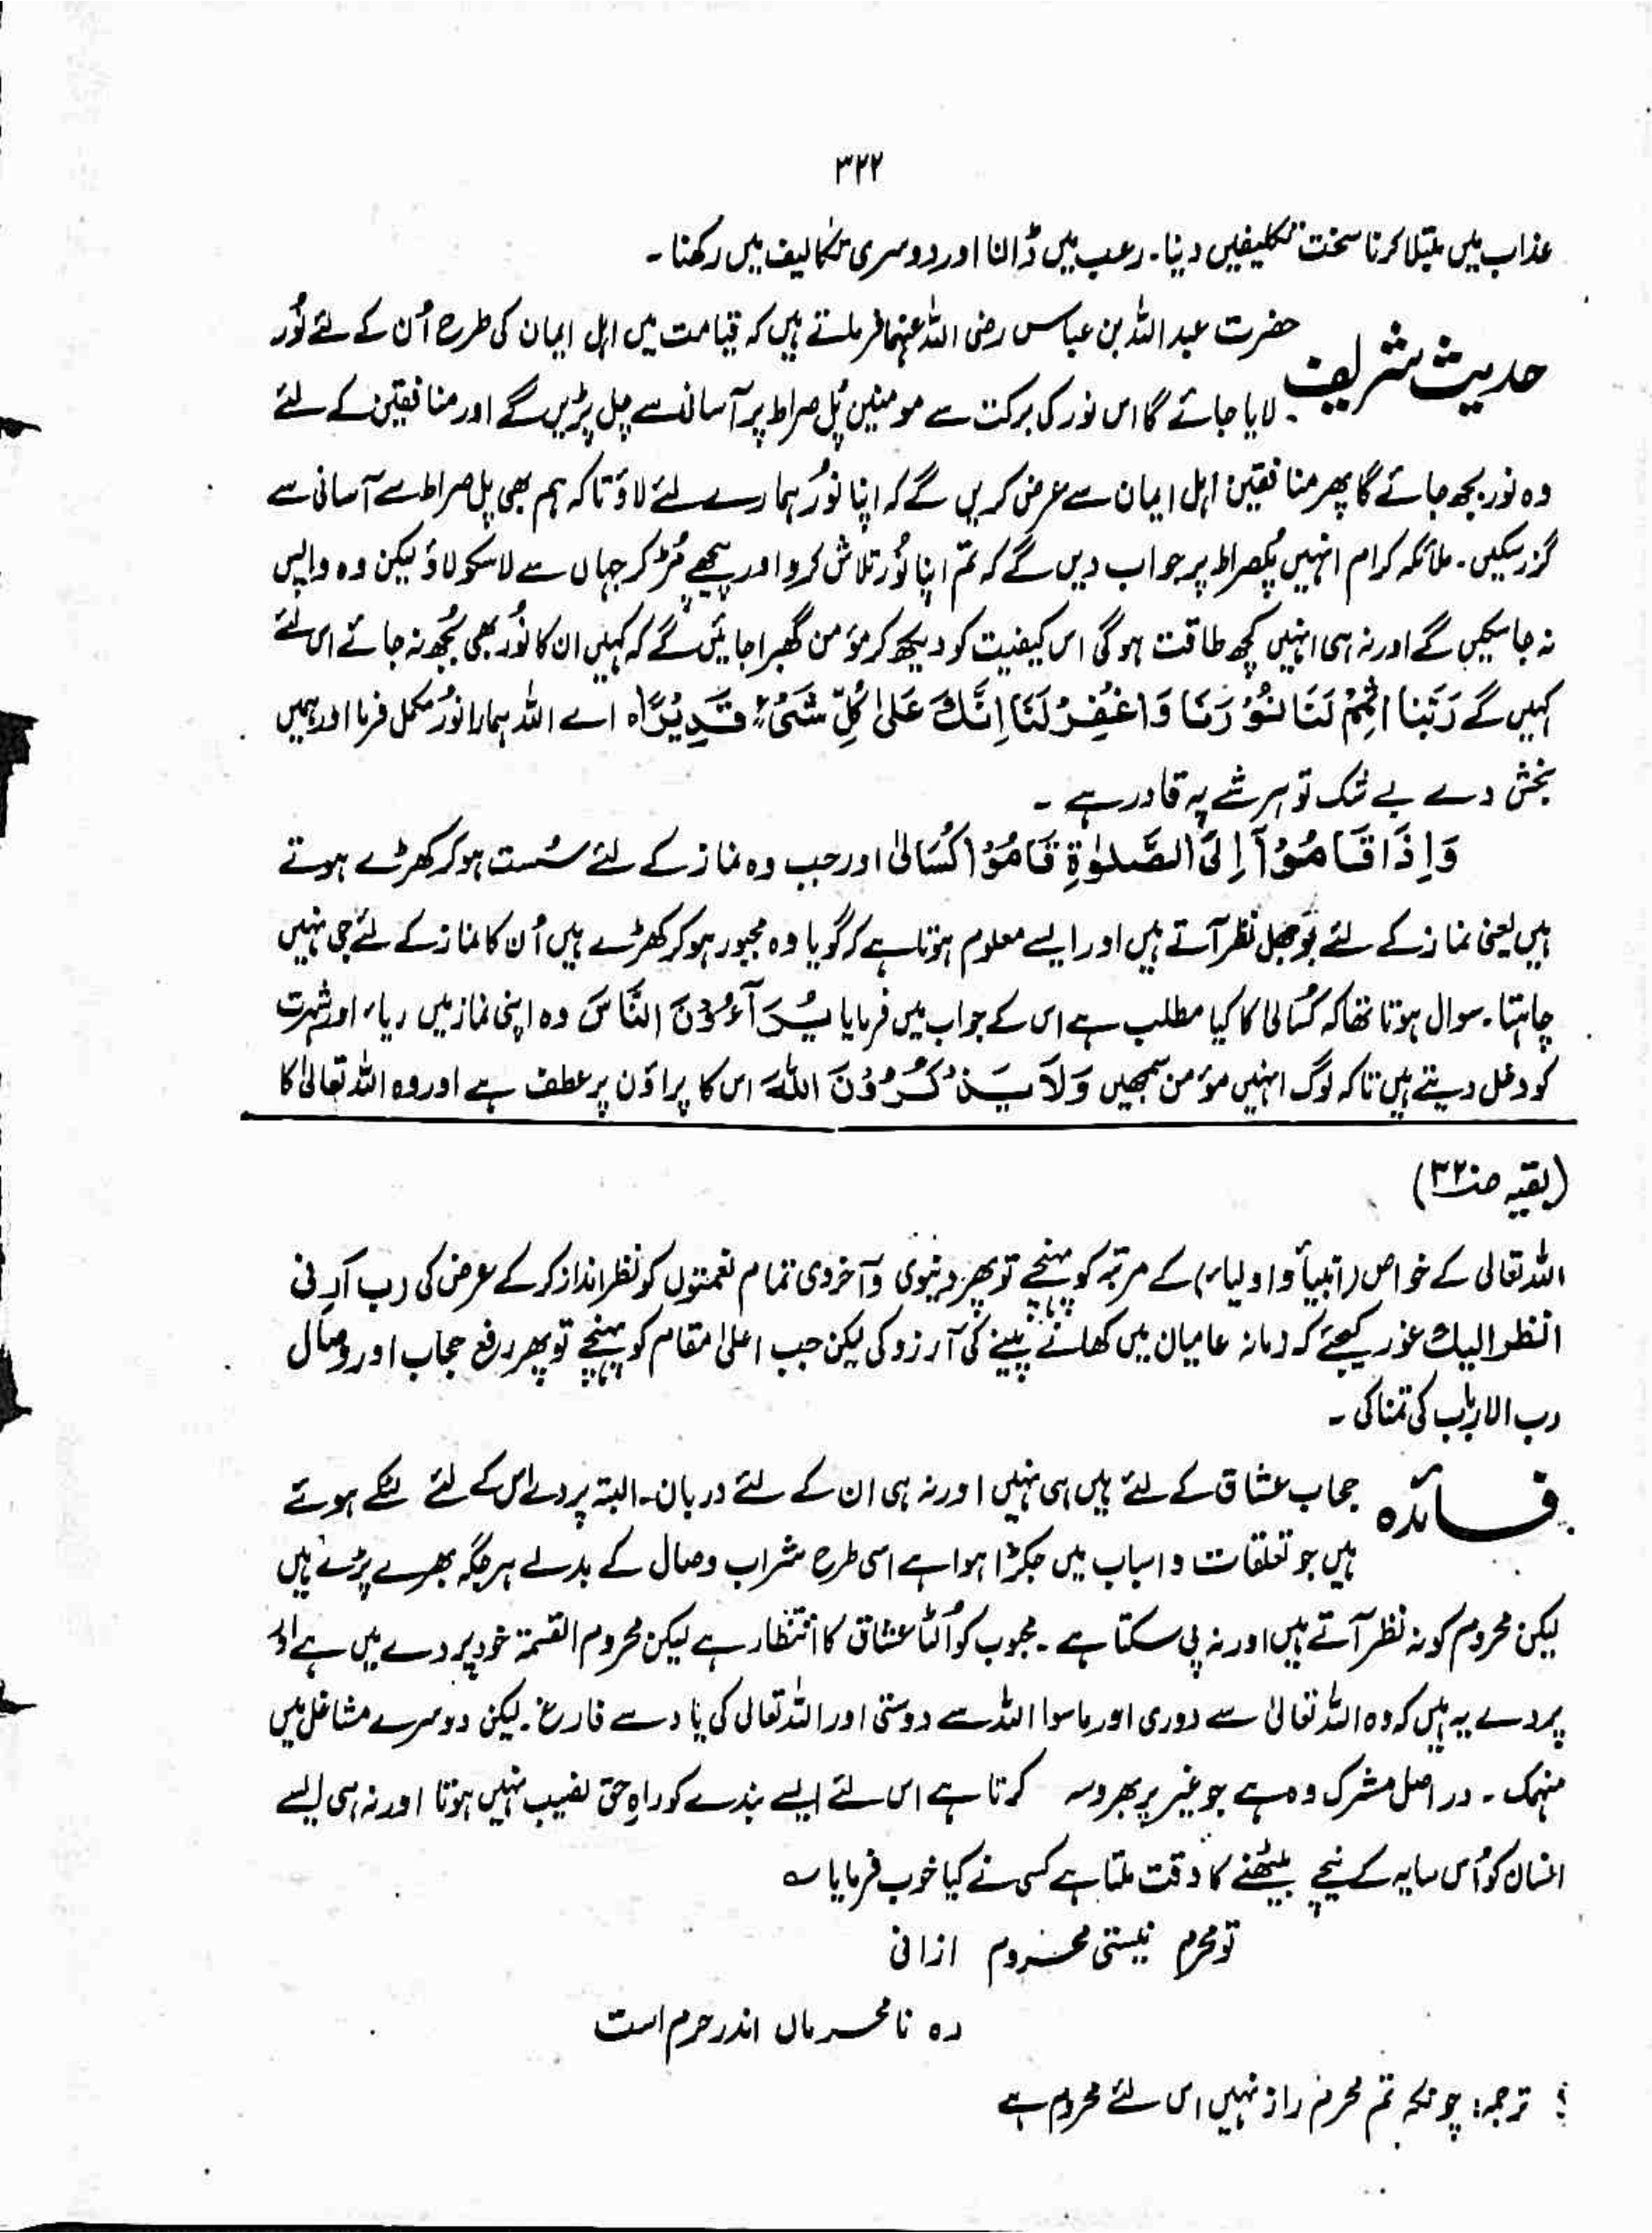 ۳۲۲
عذاب میں مبتلا کرنا سخت تکلیفیں دینا۔ رعب میں ڈالنا اور دوسری تکالیف میں رکھنا۔
حدیث شریف حضرت عبد اللہ بن عباس رضی اللہ عنہما فرماتے ہیں کہ قیامت میں اہل ایمان کی طرح اُن کے لئے نُور
لایا جائے گا اس نور کی برکت سے مومنین پُل صراط پر آسانی سے چل پڑیں گے اور منافقین کے لئے
وہ نور بجھ جائے گا پھر منافقین اہل ایمان سے عرض کریں گے کہ اپنا نوُر ہمارے لئے لاؤ تاکہ ہم بھی پل صراط سے آسانی سے
گزر سکیں۔ ملائکہ کرام انہیں پُلصراط پر جواب دیں گے کہ تم اپنا نُور تلاش کرو اور پیچھے مُڑ کر جہاں سے لا سکو لاؤ لیکن وہ واپس
نہ جا سکیں گے اور نہ ہی انہیں کچھ طاقت ہو گی اس کیفیت کو دیکھ کر مؤمن گھبرا جائیں گے کہ کہیں ان کا نُور بھی بُجھ نہ جائے اسی لئے
کہیں گے رَبَّنَا اَتْمِمْ لَنَا نُوْرَنَا وَاغْفِرْ لَنَا اِنَّكَ عَلٰى كُلِّ شَیْءٍ قَدِیْرًاہ اے اللہ ہمارا نور مکمل فرما اور ہمیں
بخش دے بے شک تو ہر شے پہ قادر ہے ۔
وَاِذَا قَامُوْآ اِلَى الصَّلٰوةِ قَامُوْا كُسَالٰى اور جب وہ نماز کے لئے سُست ہو کر کھڑے ہوتے
ہیں یعنی نماز کے لئے بوجھل نظر آتے ہیں اور ایسے معلوم ہوتا ہے کہ گویا وہ مجبور ہو کر کھڑے ہیں اُن کا نماز کے لئے جی نہیں
چاہتا۔ سوال ہوتا تھا کہ کُسالیٰ کا کیا مطلب ہے اس کے جواب میں فرمایا یُرَآءُوْنَ النَّاسَ وہ اپنی نماز میں ریاء اور شہرت
کو دخل دیتے ہیں تاکہ لوگ انہیں مؤمن سمجھیں وَلَا یَذْكُرُوْنَ اللّٰهَ اس کا یراؤن پر عطف ہے اور وہ اللہ تعالیٰ کا
(بقیہ صـ۳۲)
اللہ تعالی کے خواص (انبیأ و اولیاء) کے مرتبہ کو پہنچے تو پھر دنیوی و آخروی تمام نعمتوں کو نظر انداز کر کے عرض کی رب اَرِنی
انظر الیك غور کیجئے کہ زمانہ عامیان میں کھانے پینے کی آرزو کی لیکن جب اعلیٰ مقام کو پہنچے تو پھر رفع حجاب اور وصال
رب الارباب کی تمنا کی ۔
فائدہ حجاب عشاق کے لئے ہیں ہی نہیں اور نہ ہی ان کے لئے دربان۔ البتہ پردے اس کے لئے لٹکے ہوئے
ہیں جو تعلقات و اسباب میں جکڑا ہوا ہے اسی طرح شراب وصال کے بدلے ہر جگہ بھرے پڑے ہیں
لیکن محروم کو نہ نظر آتے ہیں اور نہ پی سکتا ہے ۔ محبوب کو اُلٹا عشاق کا انتظار ہے لیکن محروم القسمۃ خود پردے میں ہے اور
پردے یہ ہیں کہ وہ اللہ تعالیٰ سے دوری اور ماسوا اللہ سے دوستی اور اللہ تعالی کی یاد سے فارغ۔ لیکن دوسرے مشاغل میں
منہمک ۔ در اصل مشرک وہ ہے جو غیر پر بھروسہ کرتا ہے اس لئے ایسے بندے کو راہِ حق نصیب نہیں ہوتا اور نہ ہی ایسے
انسان کو اُس سایہ کے نیچے بیٹھنے کا وقت ملتا ہے کسی نے کیا خوب فرمایا ؎
تو محرم نیستی محروم ازانی
رہ نامحرماں اندر حرم است
ترجمہ: چونکہ تم محرم راز نہیں اس لئے محروم ہے